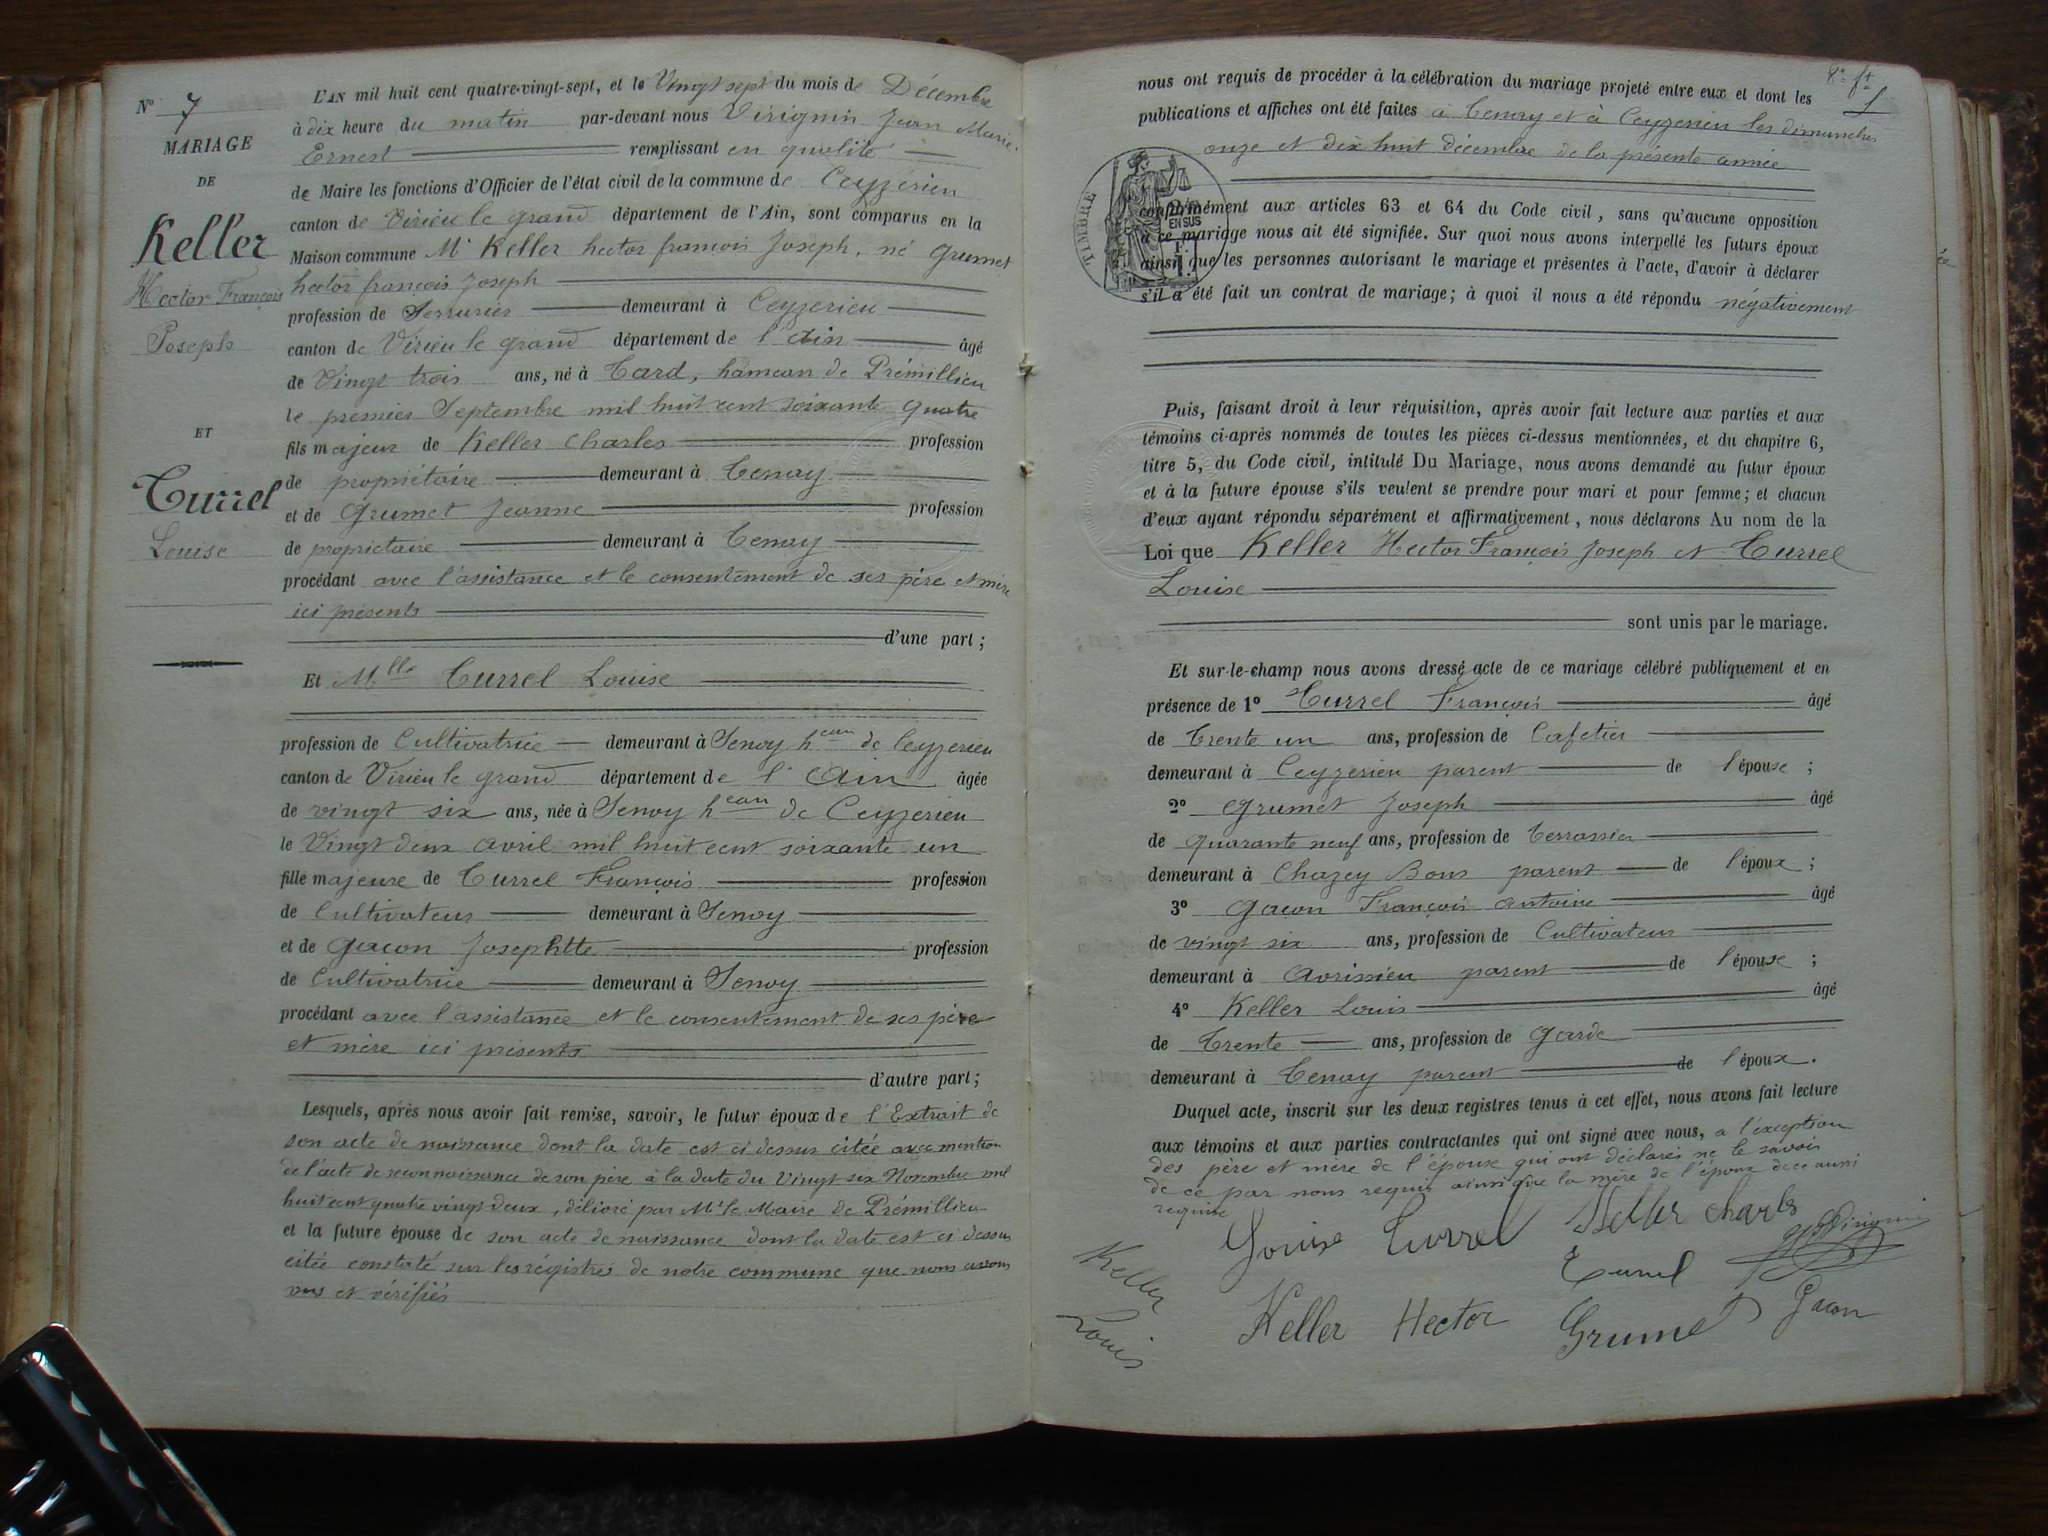 N° 7
MARIAGE
DE
Keller
Hector François
Joseph
ET
Turrel
Louise
L'AN mil huit cent quatre-vingt-sept, et le Vingt sept du mois de Décembre
à dix heure du matin par-devant nous Virignin Jean Marie
Ernest remplissant en qualité
de Maire les fonctions d'Officier de l'état civil de la commune de Ceyzérieu
canton de Virieu le grand département de l'Ain, sont comparus en la
Maison commune Mr Keller hector françois Joseph, né Grumet
hector françois Joseph
profession de Serrurier demeurant à Ceyzerieu
canton de Virieu le grand département de l'Ain âgé
de Vingt trois ans, né à Tard, hameau de Prémillieu
le premier Septembre mil huit cent soixante quatre
fils majeur de Keller Charles profession
de propriétaire demeurant à Tenay
et de Grumet Jeanne profession
de propriétaire demeurant à Tenay
procédant avec l'assistance et le consentement de ses père et mère
ici présents
d'une part ;
Et Mlle Turrel Louise
profession de Cultivatrice demeurant à Senoy heau de Ceyzerieu
canton de Virieu le grand département de l'Ain âgée
de vingt six ans, née à Senoy heau de Ceyzerieu
le Vingt deux avril mil huit cent soixante un
fille majeure de Turrel François profession
de Cultivateur demeurant à Senoy
et de Gacon Josephtte profession
de Cultivatrice demeurant à Senoy
procédant avec l'assistance et le consentement de ses père
et mère ici présents
d'autre part ;
Lesquels, après nous avoir fait remise, savoir, le futur époux de l'Extrait de
son acte de naissance dont la date est ci dessus citée avec mention
de l'acte de reconnaissance de son père à la date du Vingt six Novembre mil
huit cent quatre vingt deux, délivré par Mr le Maire de Prémillieu
et la future épouse de son acte de naissance dont la date est ci dessus
citée constaté sur les régistres de notre commune que nous avons
vus et vérifiés
8e ft
nous ont requis de procéder à la célébration du mariage projeté entre eux et dont les
publications et affiches ont été faites à Tenay et à Ceyzerieu les dimanches
onze et dix huit décembre de la présente année
TIMBRE
EN SUS
conformément aux articles 63 et 64 du Code civil, sans qu'aucune opposition
à ce mariage nous ait été signifiée. Sur quoi nous avons interpellé les futurs époux
ainsi que les personnes autorisant le mariage et présentes à l'acte, d'avoir à déclarer
s'il a été fait un contrat de mariage ; à quoi il nous a été répondu négativement
Puis, faisant droit à leur réquisition, après avoir fait lecture aux parties et aux
témoins ci-après nommés de toutes les pièces ci-dessus mentionnées, et du chapitre 6,
titre 5, du Code civil, intitulé Du Mariage, nous avons demandé au futur époux
et à la future épouse s'ils veulent se prendre pour mari et pour femme ; et chacun
d'eux ayant répondu séparément et affirmativement, nous déclarons Au nom de la
Loi que Keller Hector François Joseph et Turrel
Louise
sont unis par le mariage.
Et sur-le-champ nous avons dressé acte de ce mariage célébré publiquement et en
présence de 1° Turrel François âgé
de Trente un ans, profession de Cafetier
demeurant à Ceyzerieu parent de l'épouse ;
2° Grumet Joseph âgé
de quarante neuf ans, profession de terrassier
demeurant à Chazey Bons parent de l'époux ;
3° Gacon François antoine âgé
de vingt six ans, profession de Cultivateur
demeurant à Avrissieu parent de l'épouse ;
4° Keller Louis âgé
de Trente ans, profession de Garde
demeurant à Tenay parent de l'époux.
Duquel acte, inscrit sur les deux registres tenus à cet effet, nous avons fait lecture
aux témoins et aux parties contractantes qui ont signé avec nous, a l'exception
des père et mère de l'épouse qui ont déclarés ne le savoir
de ce par nous requis ainsi que la mère de l'époux de ce aussi
requise
Louise Turrel Keller Charles
Turrel
Keller Louis
Keller Hector Grumet Gacon